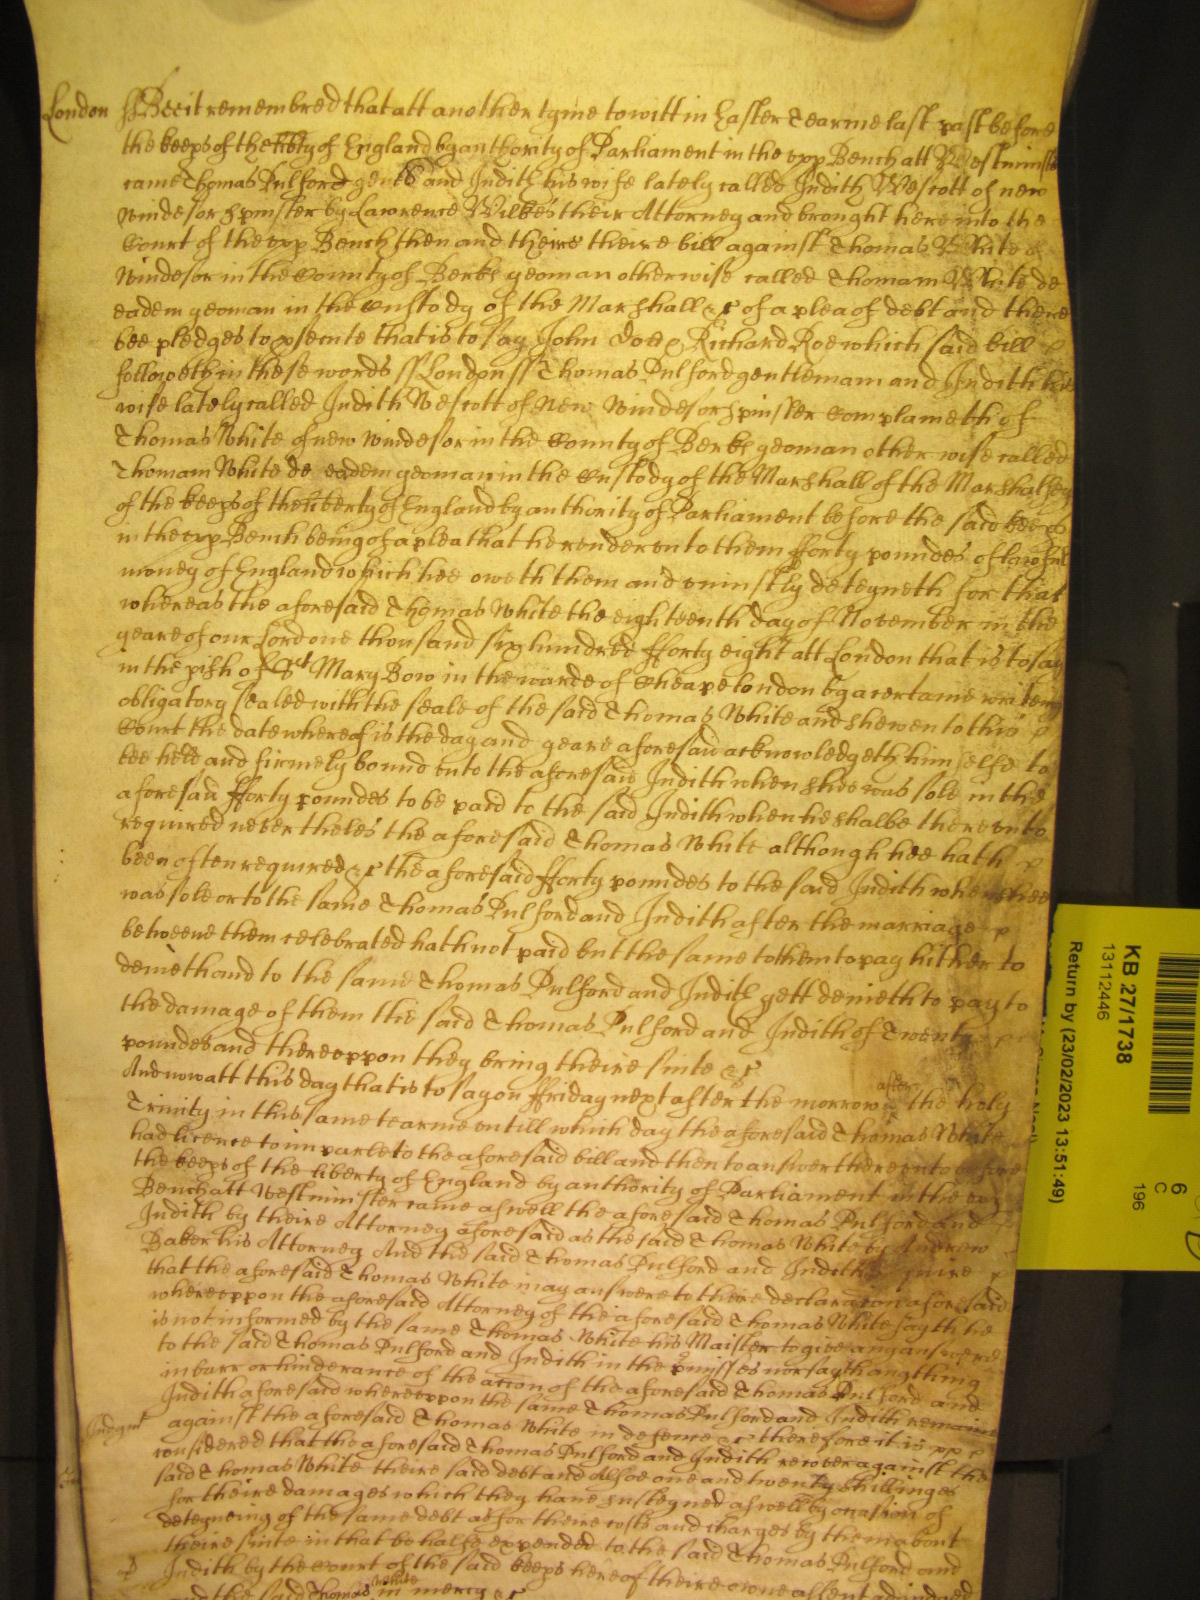 London ss Bee it remembred that att another tyme to witt in Easter Tearme last past before
the keeps of the libty of England by authority of Parliament in the upp Bench att Westminster
came Thomas Pulford gent and Judith his wife lately called Judith Wescott of new
windesor spinster by Lawrence Wilkes their Attorney and brought here into the
Court of the upp Bench then and theire theire bill against Thomas White
Windesor in the County of Berks yeoman otherwise called Thomam White de
eadem yeoman in the Custody of the Marshall &c of a plea of debt and there
bee pledges to psecute that is to say John Doe & Richard Roe which said bill
followeth in these words ss London ss Thomas Pulford gentlemam and Judith his
wife lately called Judith Wescott of New Windesor spinster complaineth of
Thomas White of new Windesor in the County of Berks yeoman other wise called
Thomam White de eadem yeoman in the Custody of the Marshall of the Marshalsey
of the keeps of the liberty of England by authority of Parliament before the said keeps
in the upp Bench being of a plea that he render unto them fforty poundes of lawful
money of England which hee oweth them and uniustly deteyneth for that
whereas the aforesaid Thomas White the eighteenth day of November in the
yeare of our Lord one thousand six hundred fforty eight att London that is to say
in the pish of St Mary Bow in the warde of Cheape London by a certaine writeing
obligatory sealed with the seale of the said Thomas White and shewen to this
Court the date whereof is the day and yeare aforesaid acknowledgeth him selfe to
bee held and firmely bound unto the aforesaid Judith when shee was sole in the
aforesaid fforty poundes to be paid to the said Judith when he shalbe thereunto
required never theles the aforesaid Thomas White although hee hath
been often required &c the aforesaid fforty poundes to the said Judith when shee
was sole or to the same Thomas Pulford and Judith after the marriage
betweene them celebrated hath not paid but the same to them to pay hitherto
denieth and to the same Thomas Pulford and Judith yett denieth to pay to
the damage of them the said Thomas Pulford and Judith of Twenty
poundes and thereuppon they bring theire suite &c
And now att this day that is to say on ffriday next after the morrow after the holy
Trinity in this same tearme untill which day the aforesaid Thomas White
had licence to imparle to the aforesaid bill and then to answer thereunto before
the keeps of the liberty of England by authority of Parliament in the upp
Bench att Westminster came aswell the aforesaid Thomas Pulford and
Judith by theire Attorney aforesaid as the said Thomas White by Andrew
Baker his Attorney And the said Thomas Pulford and Judith
that the aforesaid Thomas White may answere to theire declaracon aforesaid
whereuppon the aforesaid Attorney of the aforesaid Thomas White sayth he
is not informed by the same Thomas White his Maister to give any answere
to the said Thomas Pulford and Judith in the pmisses nor sayth anything
in barr or hinderance of the accon of the aforesaid Thomas Pulford and
Judith aforesaid whereuppon the same Thomas Pulford and Judith remaine
Judgmt against the aforesaid Thomas White in defence &c therefore it is
considered that the aforesaid Thomas Pulford and Judith recover against the
said Thomas White theire said debt and alsoe one and twenty shillinges
for theire damages which they have susteyned aswell by occasion of
deteyneing of the same debt as for theire costs and charges by them about
theire suite in that behalfe expended to the said Thomas Pulford and
Judith by the Court of the said keeps here of theire owne assent adiudged
and the said Thomas White in mercy &c
KB 27/1738
13112446
Return by (23/02/2023 13:51:49)
6
C
196